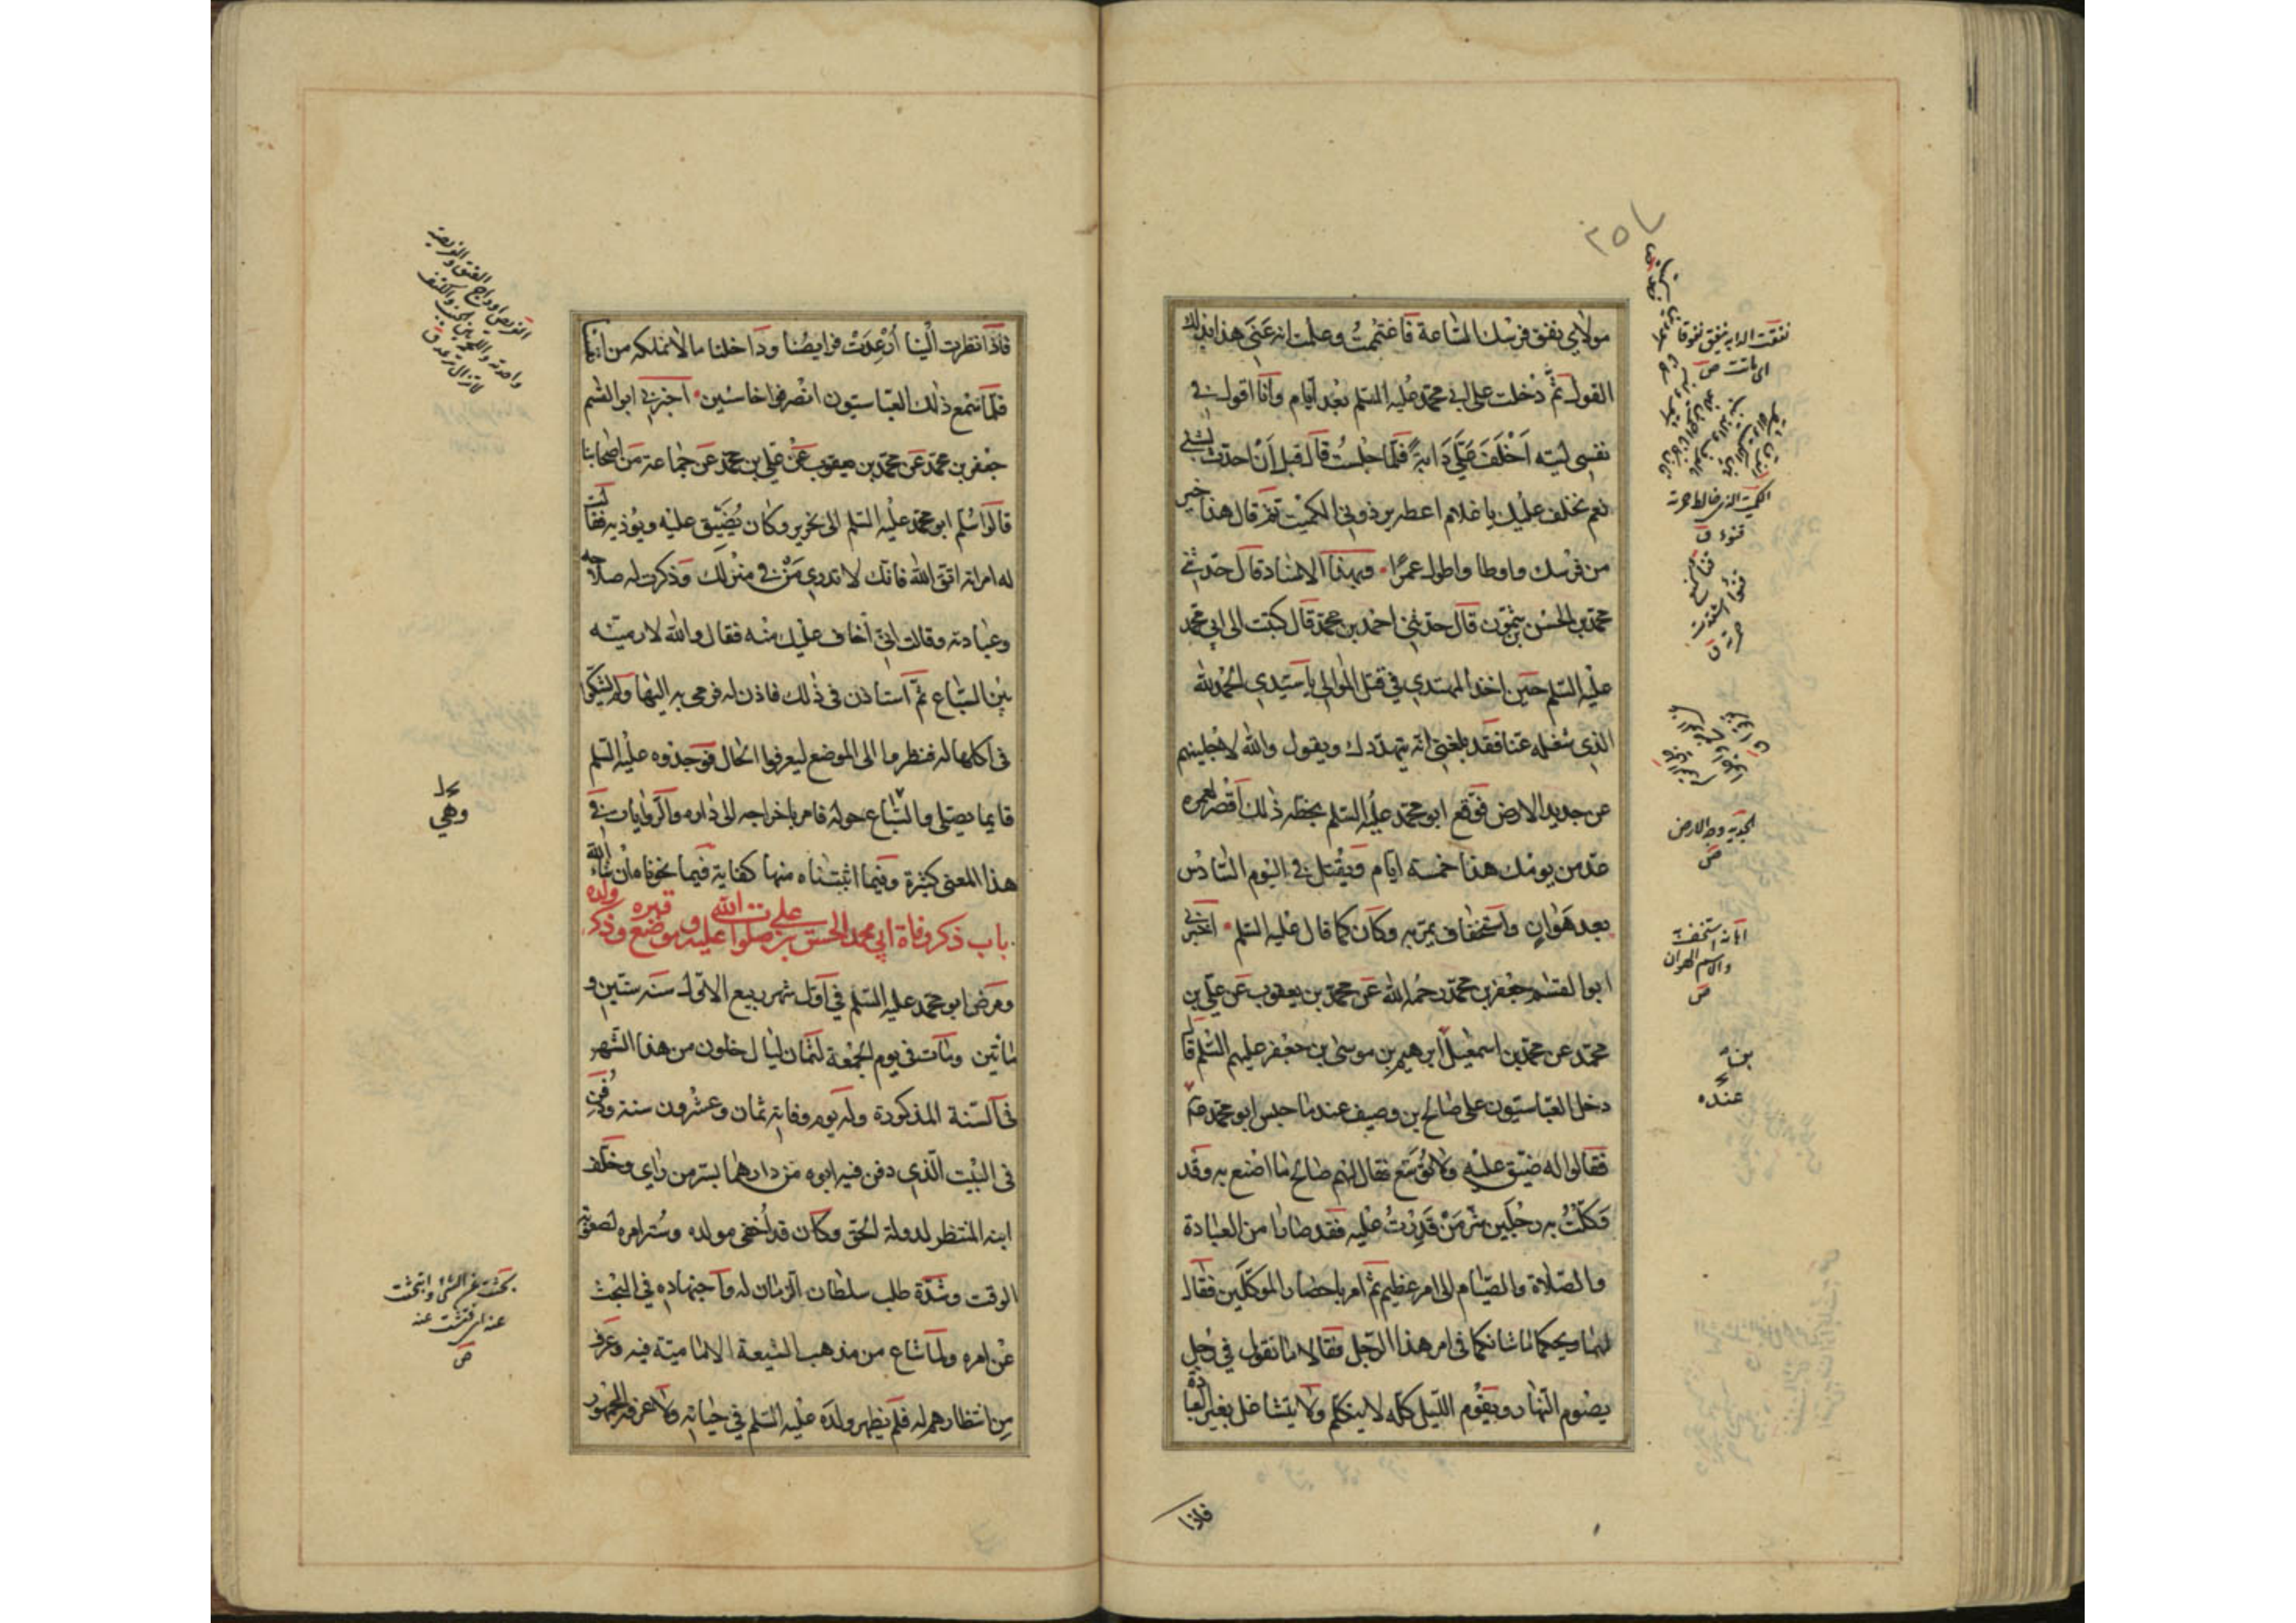 مولاي نفق فرسك الساعة فاغتممت وعلمت انه عنى هذا بذلك
القول ثم دخلت على ابي محمد عليه السلم بعد ايام وانا اقول في
نفسي ليته اخلف علي دابة فلما جلست قال قبل ان احدث بشئ
نعم نخلف عليك يا غلام اعطه برذوني الكميت ثم قال هذا خير
من فرسك واوطا واطول عمرا وبهذا الاسناد قال حدثني
محمد بن الحسن بن شمون قال حدثني احمد بن محمد قال كتبت الى ابي محمد
عليه السلم حين اخذ المهتدي في قتل الموالي يا سيدي الحمد لله
الذي شغله عنا فقد بلغني انه يتهددك ويقول والله لاجلينهم
عن جديد الارض فوقع ابو محمد عليه السلم بخطه ذلك اقصر لعمره
عد من يومك هذا خمسه ايام ويقتل في اليوم السادس
بعد هوان واستخفاف يمر به وكان كما قال عليه السلم اخبرني
ابو القسم جعفر بن محمد رحمه الله عن محمد بن يعقوب عن علي بن
محمد عن محمد بن اسمعيل بن ابرهيم بن موسى بن جعفر عليهم السلم قال
دخل العباسيون على صالح بن وصيف عندما حبس ابو محمد
فقالوا له ضيق عليه ولا توسع فقال لهم صالح ما اصنع به وقد
وكلت به رجلين شر من قدرت عليه فقد صارا من العبادة
والصلاة والصيام الى امر عظيم ثم امر باحضار الموكلين فقال
لهما ويحكما ما شانكما في امر هذا الرجل فقالا ما نقول في رجل
يصوم النهار ويقوم الليل كله لا يتكلم ولا يتشاغل بغير العبادة
فاذا
نفقت الدابه تنفق نفوقا
اى ماتت ص
الجديد وجه الارض
ص
استخفت
والاسم الهوان
ص
بن
عنده
فاذا نظرت الينا ارعدت فرايصنا وداخلنا ما لا نملكه من انفسنا
فلما سمع ذلك العباسيون انصرفوا خاسئين اخبرني ابو القسم
جعفر بن محمد عن محمد بن يعقوب عن علي بن محمد عن جماعة من اصحابنا
قالوا سلم ابو محمد عليه السلم الى نحرير وكان يضيق عليه ويؤذيه فقالت
له امراته اتق الله فانك لا تدري من في منزلك وذكرت له صلاحه
وعبادته وقالت اني اخاف عليك منه فقال والله لارمينه
بين السباع ثم استاذن في ذلك فاذن له فرمى به اليها ولم يشكوا
في اكلها له فنظروا الى الموضع ليعرفوا الحال فوجدوه عليه السلم
قايما يصلي والسباع حوله فامر باخراجه الى داره والروايات في
هذا المعنى كثيرة وفيما اثبتناه منها كفاية فيما نحوناه ان شاء الله
باب ذكر وفاة ابي محمد الحسن بن علي صلوات الله عليه وموضع قبره وذكر ولده
ومرض ابو محمد عليه السلم في اول شهر ربيع الاول سنه ستين و
مائتين ومات في يوم الجمعة لثمان ليال خلون من هذا الشهر
في السنة المذكورة وله يوم وفاته ثمان وعشرون سنة ودفن
في البيت الذي دفن فيه ابوه من دارهما بسر من راي وخلف
ابنه المنتظر لدولة الحق وكان قد اخفى مولده وستر امره لصعوبة
الوقت وشدة طلب سلطان الزمان له واجتهاده في البحث
عن امره ولما شاع من مذهب الشيعة الامامية فيه وعرف
من انتظارهم له فلم يظهر ولده عليه السلم في حياته ولا عرفه الجمهور
وهي
بحثت عن الشئ وابتحثت
عنه اى فتشت عنه
ص